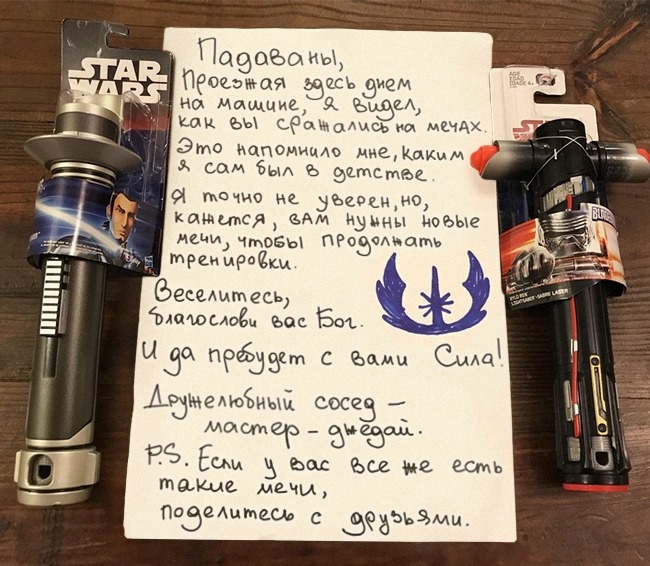 STAR
WARS
Падаваны,
Проезжая здесь днем
на машине, я видел,
как вы сражались на мечах.
Это напомнило мне, каким
я сам был в детстве.
Я точно не уверен, но,
кажется, вам нужны новые
мечи, чтобы продолжать
тренировки.
Веселитесь,
благослови вас Бог.
И да пребудет с вами Сила!
Дружелюбный сосед –
мастер – джедай.
P.S. Если у вас все же есть
такие мечи,
поделитесь с друзьями.
AGE
EDAD
EDADE 4+
KYLO REN
LIGHTSABER • SABRE LASER